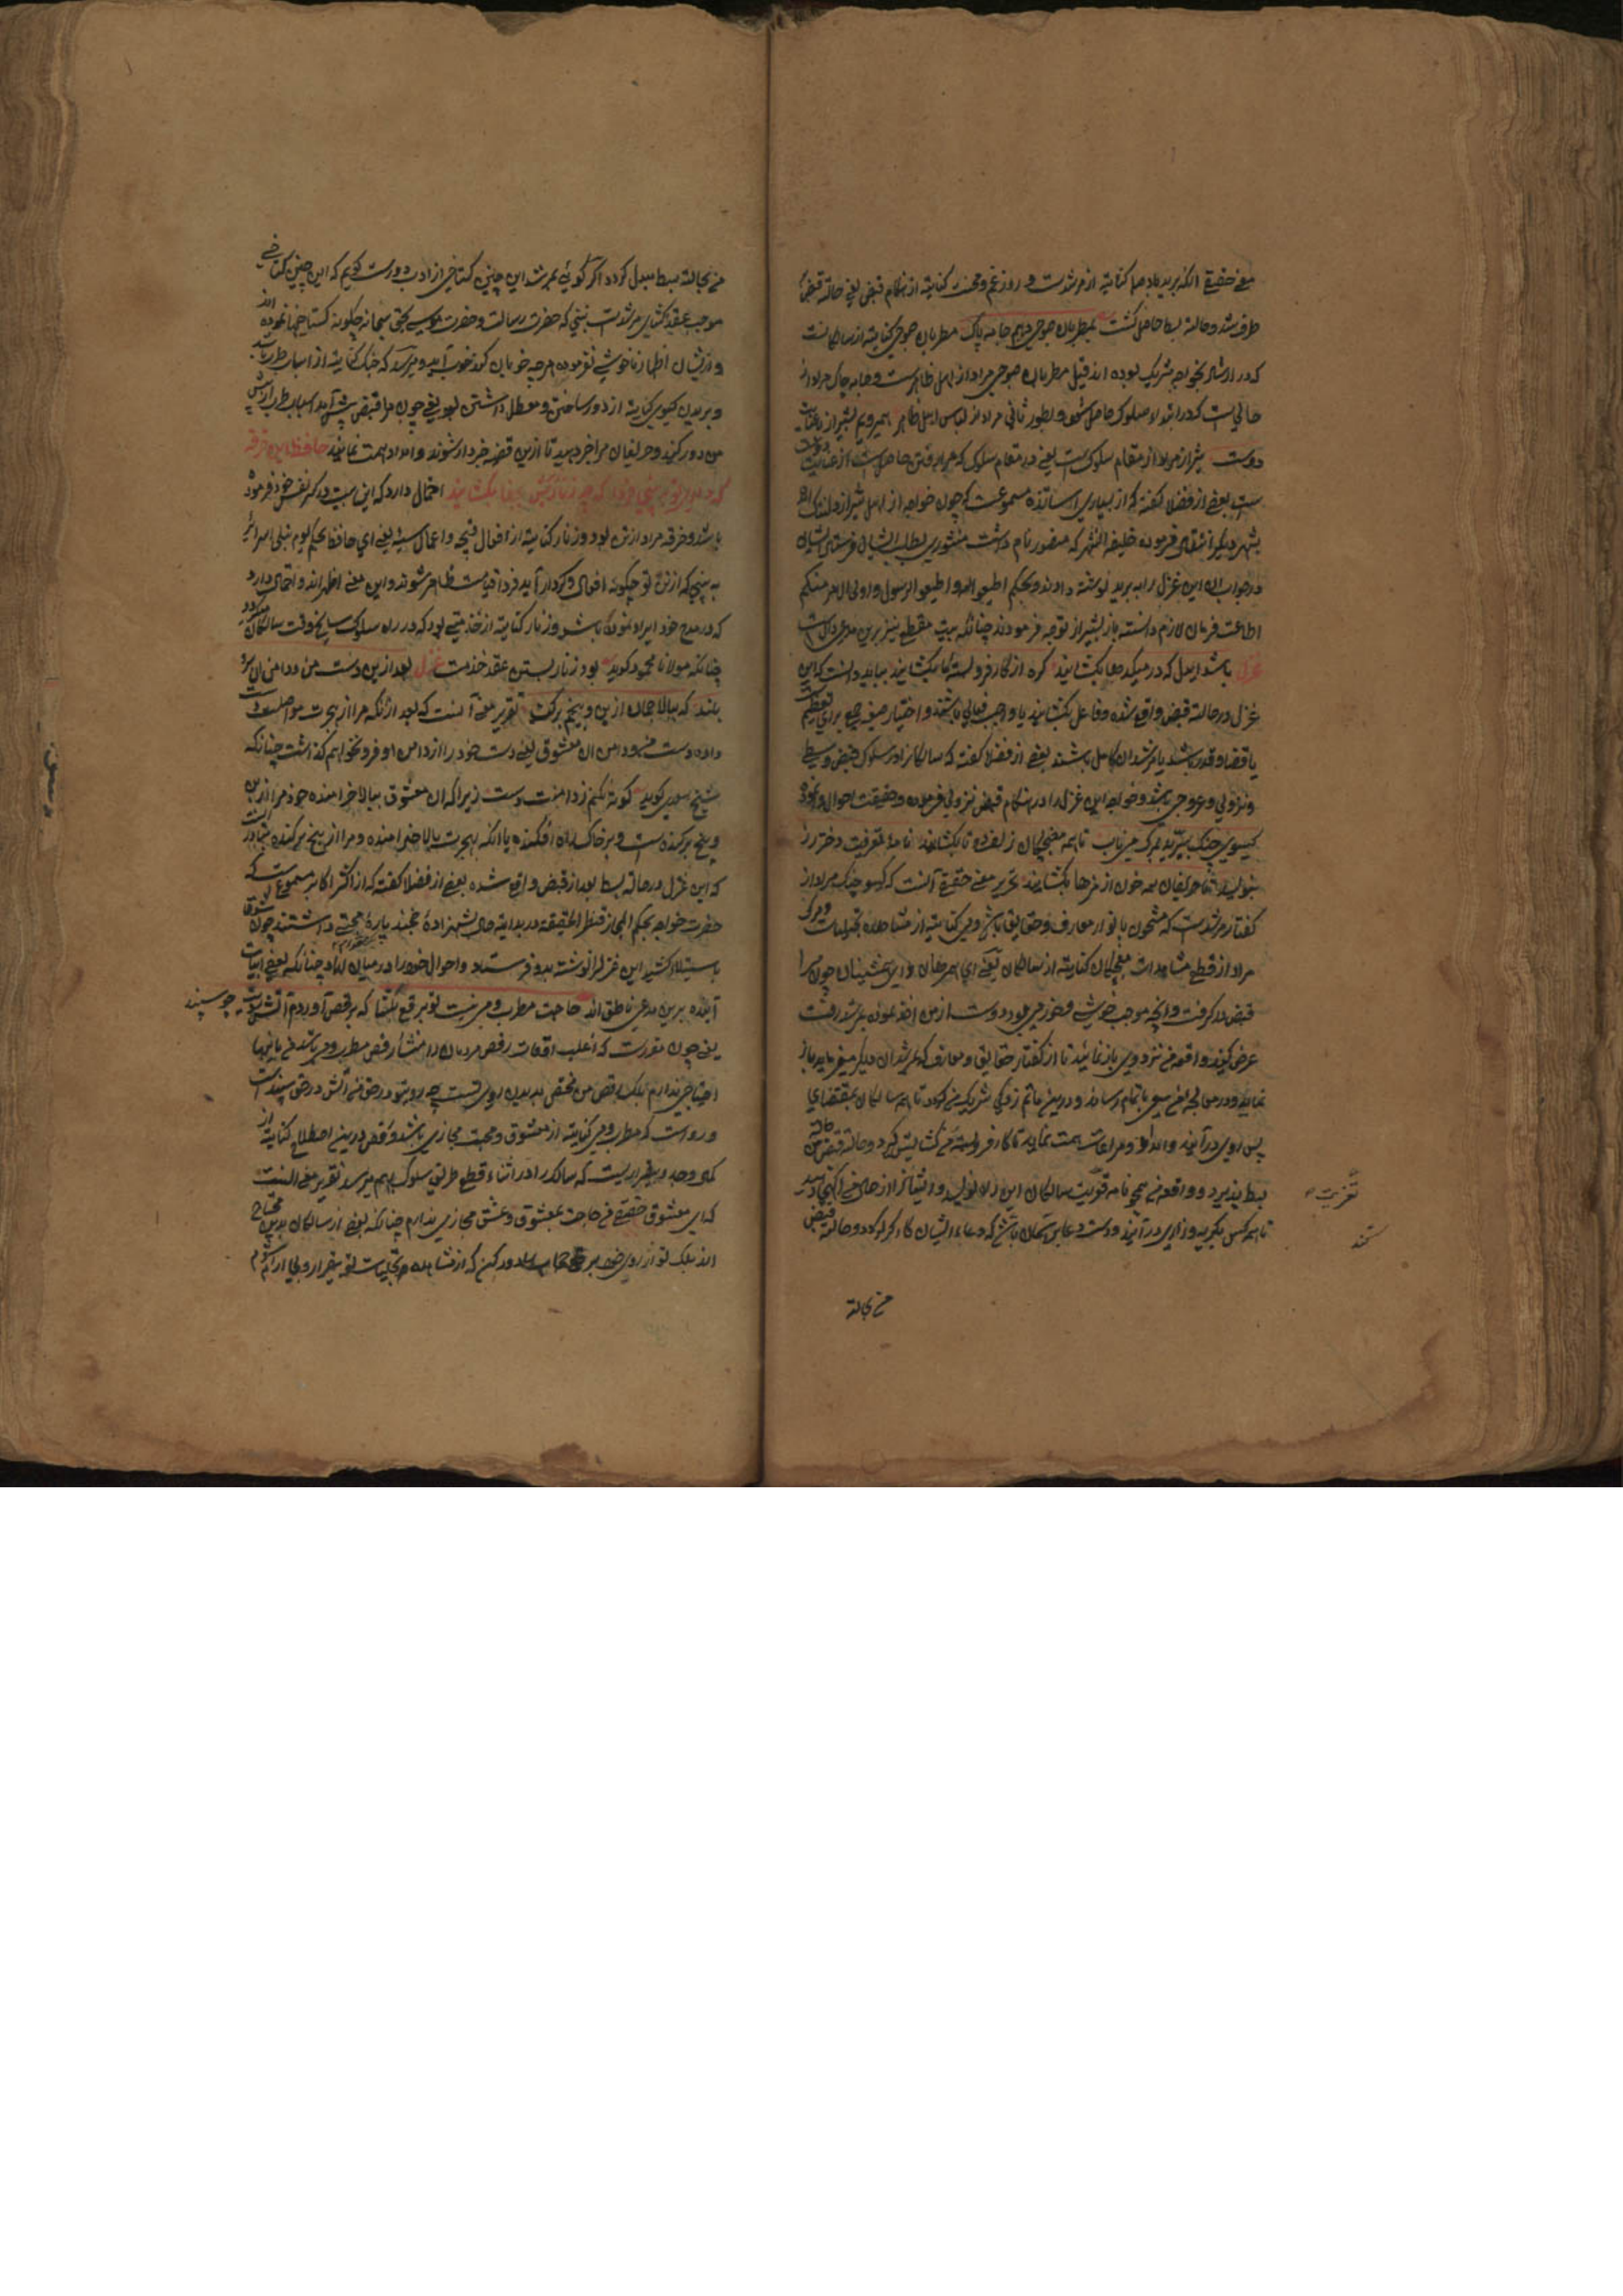 معنی حقیقی آنکه برید باد صبا کنایة از مرشدست و روز غم و محنت کنایة از هنکام قبض یعنی حالة قبض
طرف شد و حالة بسط حاصل کشت بمطربان صبوحی دهیم جامه پاک مطربان صبوحی کنایة از سالکانست
که در ارشاد بخواجه شریک بوده اند قبل مطربان صبوحی مراد از اهل ظاهرست و جامه چاک مراد از
حالی است که در ابتداء سلوک حاصل شود و بطور ثانی مراد از لباس اهل ظاهر همیرویم بشیراز با عنایت
دوست شیراز مراد از مقام سلوک است یعنی در مقام سلوک که همراه فتن حاصل است از عنایت
است بعضی از فضلا کفته که از بسیاری اساتذه مسموعست که چون خواجه از اهل شیراز
بشهر دیکر انتقال فرموده خلیفه الشهر که منصور نام داشت منشوری بطلب ایشان فرستاد ایشان
در جواب آن این غزل را به برید نوشته دادند و بحکم اطیعوا الله و اطیعوا الرسول و اولی الامر منکم
اطاعت فرمان لازم دانسته باز بشیراز توجه فرمودند چنانکه بیت مقطع نیز برین مدعی دال است
غزل باشد ای دل که در میکده ها بکشایند کره از کار فروبسته ما بکشایند بباید دانست که این
غزل در حالة قبض واقع شده و فاعل بکشایند یا واجب تعالی باشد و اختیار صیغه جمع برای تعظیم است
یا قضا و قدر باشند یا مرشدان کامل باشند بعضی از فضلا کفته که سالکانرا در سلوک قبض و بسطی
و نزولی و عروجی باشد و خواجه این غزل را در هنکام قبض نزولی فرموده و حقیقت احوال وا نموده
کیسوی چنک ببرید بمرک می ناب تا همه مغبچکان زلف دو تا بکشایند نامهٔ تعزیت دختر رز
بنویسید تا حریفان همه خون از مژها بکشایند تحریر معنی حقیقی آنست که کیسو چنک مراد از
کفتار مرشدست که مشحون بانوار معارف و حقایق باشد و می کنایة از مشاهده تجلیات و مرک
مراد از قطع مشاهدات مغبچکان کنایة از سالکان یعنی ای همرهان و ای همنشینان چون مرا
قبض در کرفت و آنچه موجب خوشی و خورمی بود دوست از من اخذ نموده بمرشد رفت
عرض کنید و واقعه من نزد وی باز نمائید تا از کفتار حقایق و معارف که مرشدان دیکر میفرماید باز
نماید و در معالجه من سعی باتمام رساند و درین ماتم زدکی شریک من کردد تا همه سالکان بمقتضای
پس روی در آیند و امداد و مراعات همت نماید تا کار فروبسته من کشایش کیرد و حالة قبض من
بسط پذیرد و واقعه من همچو نامه تعزیت سالکان این راه نویسید و ایشانرا از حال من آکهی دهید
تا همه کس بکریه و زاری در آیند و دست دعا بر آسمان باشند که دعاء ایشان کارکر کردد و حالة قبض
من بحالة
تعزیت
کنند
من بحالة بسط مبدل کردد اکر کوئی بمرشد این چنین کستاخی از ادب دورست کویم که این چنین کستاخی
موجب عقده کشایی مرشدست نبینی که حضرت رسالت و حضرت موسی بحق سبحانه چکونه کستاخیها نموده اند
و از ایشان اظهار ناخوشی نفرموده هر چه خوبان کنند خوب آید و میرسد که چنک کنایة از اسباب طرب باشد
و بریدن کیسوی کنایة از دور ساختن و معطل داشتن بود یعنی چون مرا قبض پیش آمد اسباب طرب از پیش
من دور کنید و حریفان مرا خبر دهید تا ازین قضیه خبردار شوند و امداد همت نمایند حافظ این خرقه
که داری تو به بینی فردا که چه زنار ز زیرش بجفا بکشایند احتمال دارد که این بیت در کسر نفس خود فرموده
باشد و خرقه مراد از تن بود و زنار کنایة از افعال قبیحه و اعمال سیئه یعنی ای حافظ بحکم یوم تبلی السرائر
به بینی که از تن تو چکونه افعال و کردار آید فردا قیامت ظاهر شوند و این معنی اظهر اند و احتمال دارد
که در مدح خود ایراد نموده باشد و زنار کنایة از خدمتی بود که در راه سلوک سالکان
چنانکه مولانا محمود کوید بود زنار بستن عقد خدمت غزل بعد ازین دست من و دامن آن سرو
بلند که ببالای چمان از بن و بیخم برکند تقریر معنی آنست که بعد از آنکه مرا از هجرت مواصلت دست
داده دست من و دامن آن معشوق یعنی دست خود را از دامن او فرو نخواهم کذاشت چنانکه
شیخ سعدی کوید کوته نکنم ز دامنت دست زیرا که آن معشوق ببالا خرامنده خود مرا از بن
و بیخ برکنده است و بر خاک راه افکنده یا آنکه بهجرت بالا خرامنده و مرا از بیخ برکنده
که این غزل در حالة بسط بعد از قبض واقع شده بعضی از فضلا کفته که از اکثر اکابر مسموعست که
حضرت خواجه بحکم المجاز قنطرة الحقیقة در بدایة حال بشهزادهٔ خجند پارهٔ محبتی داشتند چون شوق
باستیلا کشید این غزل را نوشته بدو فرستاد و احوال خود را در میان نهاد چنانکه بعضی ابیات
آینده برین مدعی ناطق اند حاجت مطرب و می نیست تو برقع بکشا که برقص آوردم آتش رویت چو سپند
یعنی چون مقررست که اغلب اوقات رقص مردمان را منشأ رقص مطرب و می باشد من باینها
احتیاجی ندارم بلکه رقص من مختص بدیدن روی تست چه روی تو در حق من آتش در حق سپندست
و رواست که مطرب و می کنایة از معشوق و محبت مجازی باشد و رقص درینجا اصطلاح کنایة از
کمال وجد و بیقراریست که سالک را در اثناء قطع طریق سلوک بهم میرسد تقریر معنی آنست
که ای معشوق حقیقی من حاجت بمعشوق و عشق مجازی ندارم چنانکه بعضی از سالکان بدین محتاج
اند بلکه تو از روی خود برقع حجاب را دور کن که از مشاهده تجلیات تو بیقرار و بی آرام شوم